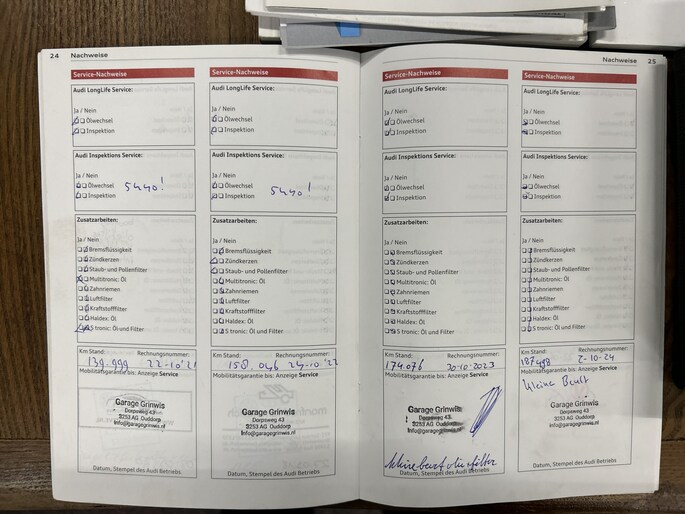 24 Nachweise
Service-Nachweise
Audi LongLife Service:
Ja / Nein
Ölwechsel
Inspektion
Audi Inspektions Service:
Ja / Nein
Ölwechsel
5W40!
Inspektion
Zusatzarbeiten:
Ja / Nein
Bremsflüssigkeit
Zündkerzen
Staub- und Pollenfilter
Multitronic: Öl
Zahnriemen
Luftfilter
Kraftstofffilter
Haldex: Öl
S tronic: Öl und Filter
Km Stand: Rechnungsnummer:
139.999 22-10'21
Mobilitätsgarantie bis: Anzeige Service
Garage Grinwis
Dorpsweg 43
3253 AG Ouddorp
info@garagegrinwis.nl
Datum, Stempel des Audi Betriebs
Service-Nachweise
Audi LongLife Service:
Ja / Nein
Ölwechsel
Inspektion
Audi Inspektions Service:
Ja / Nein
Ölwechsel
5W40!
Inspektion
Zusatzarbeiten:
Ja / Nein
Bremsflüssigkeit
Zündkerzen
Staub- und Pollenfilter
Multitronic: Öl
Zahnriemen
Luftfilter
Kraftstofffilter
Haldex: Öl
S tronic: Öl und Filter
Km Stand: Rechnungsnummer:
158.046 24-10-'22
Mobilitätsgarantie bis: Anzeige Service
Garage Grinwis
Dorpsweg 43
3253 AG Ouddorp
info@garagegrinwis.nl
Datum, Stempel des Audi Betriebs
Nachweise 25
Service-Nachweise
Audi LongLife Service:
Ja / Nein
Ölwechsel
Inspektion
Audi Inspektions Service:
Ja / Nein
Ölwechsel
Inspektion
Zusatzarbeiten:
Ja / Nein
Bremsflüssigkeit
Zündkerzen
Staub- und Pollenfilter
Multitronic: Öl
Zahnriemen
Luftfilter
Kraftstofffilter
Haldex: Öl
S tronic: Öl und Filter
Km Stand: Rechnungsnummer:
174.076 30-10-2023
Mobilitätsgarantie bis: Anzeige Service
Garage Grinwis
Dorpsweg 43
3253 AG Ouddorp
info@garagegrinwis.nl
Kleine beurt
Datum, Stempel des Audi Betriebs
Service-Nachweise
Audi LongLife Service:
Ja / Nein
Ölwechsel
Inspektion
Audi Inspektions Service:
Ja / Nein
Ölwechsel
Inspektion
Zusatzarbeiten:
Ja / Nein
Bremsflüssigkeit
Zündkerzen
Staub- und Pollenfilter
Multitronic: Öl
Zahnriemen
Luftfilter
Kraftstofffilter
Haldex: Öl
S tronic: Öl und Filter
Km Stand: Rechnungsnummer:
187488 2-10-24
Mobilitätsgarantie bis: Anzeige Service
Kleine Beurt
Garage Grinwis
Dorpsweg 43
3253 AG Ouddorp
info@garagegrinwis.nl
Datum, Stempel des Audi Betriebs